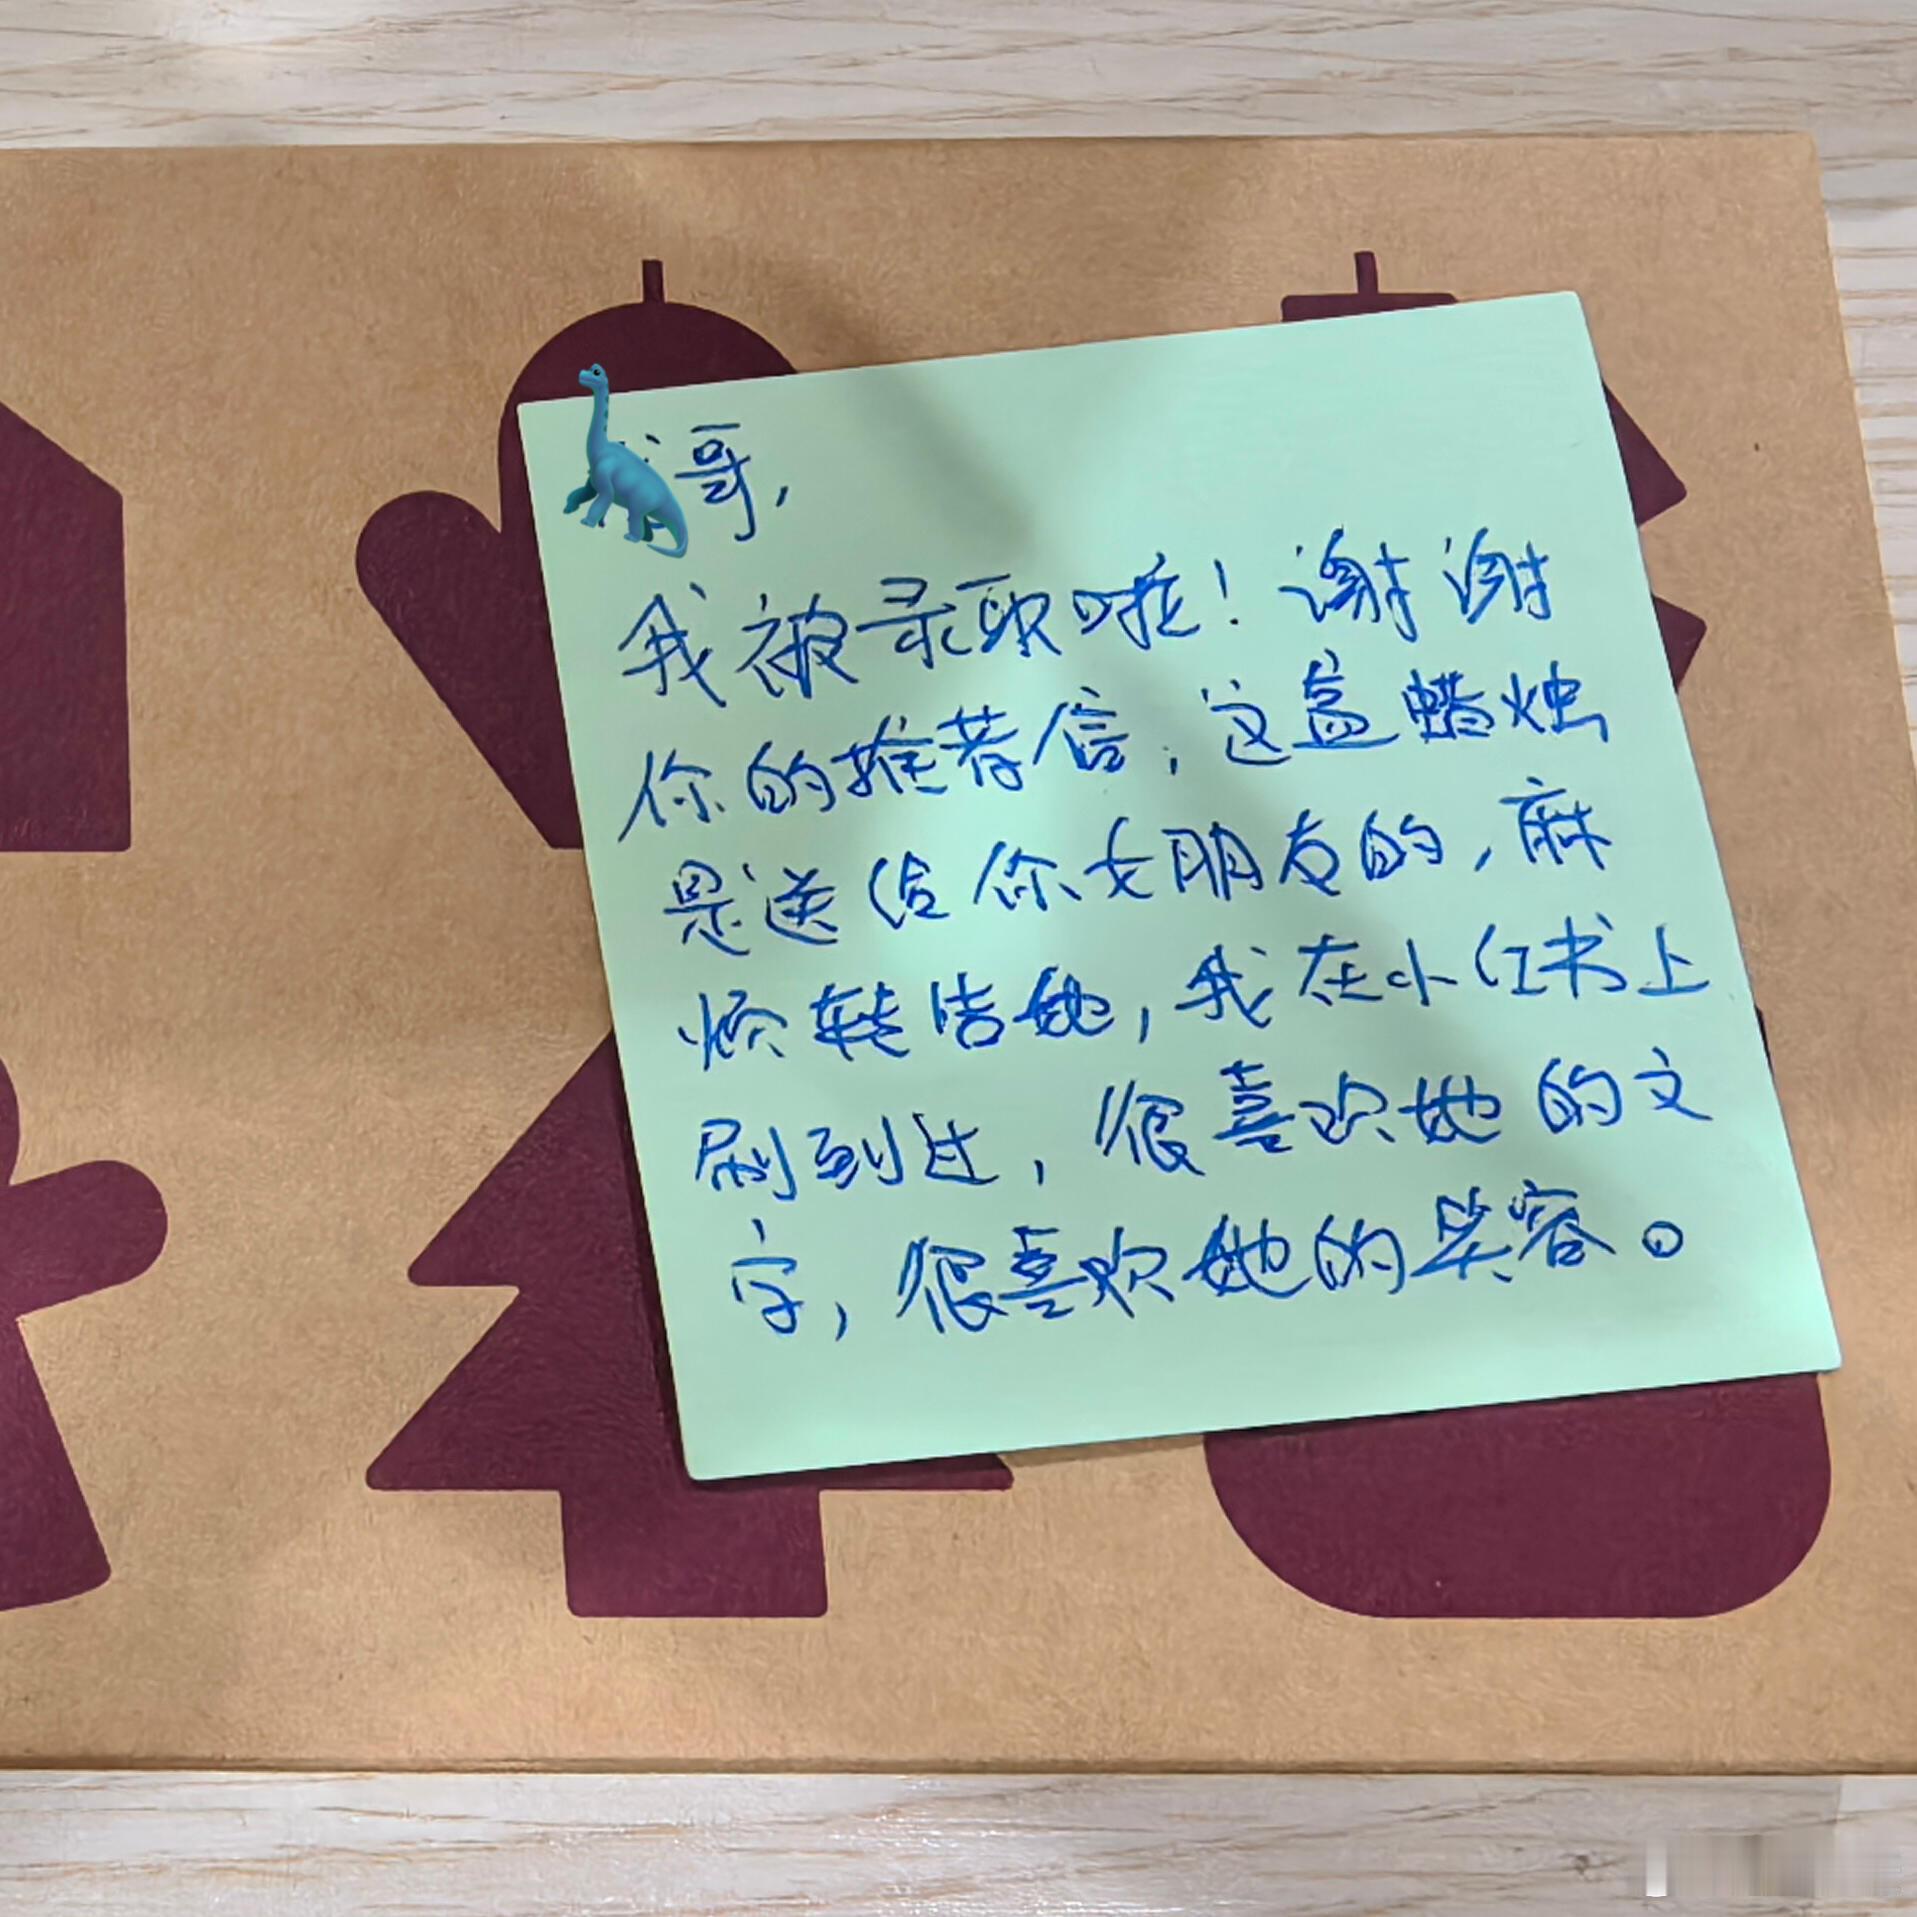 哥，
我被录取啦！谢谢
你的推荐信，这盒蜡烛
是送给你女朋友的，麻
烦转告她，我在小红书上
刷到过，很喜欢她的文
字，很喜欢她的笑容。